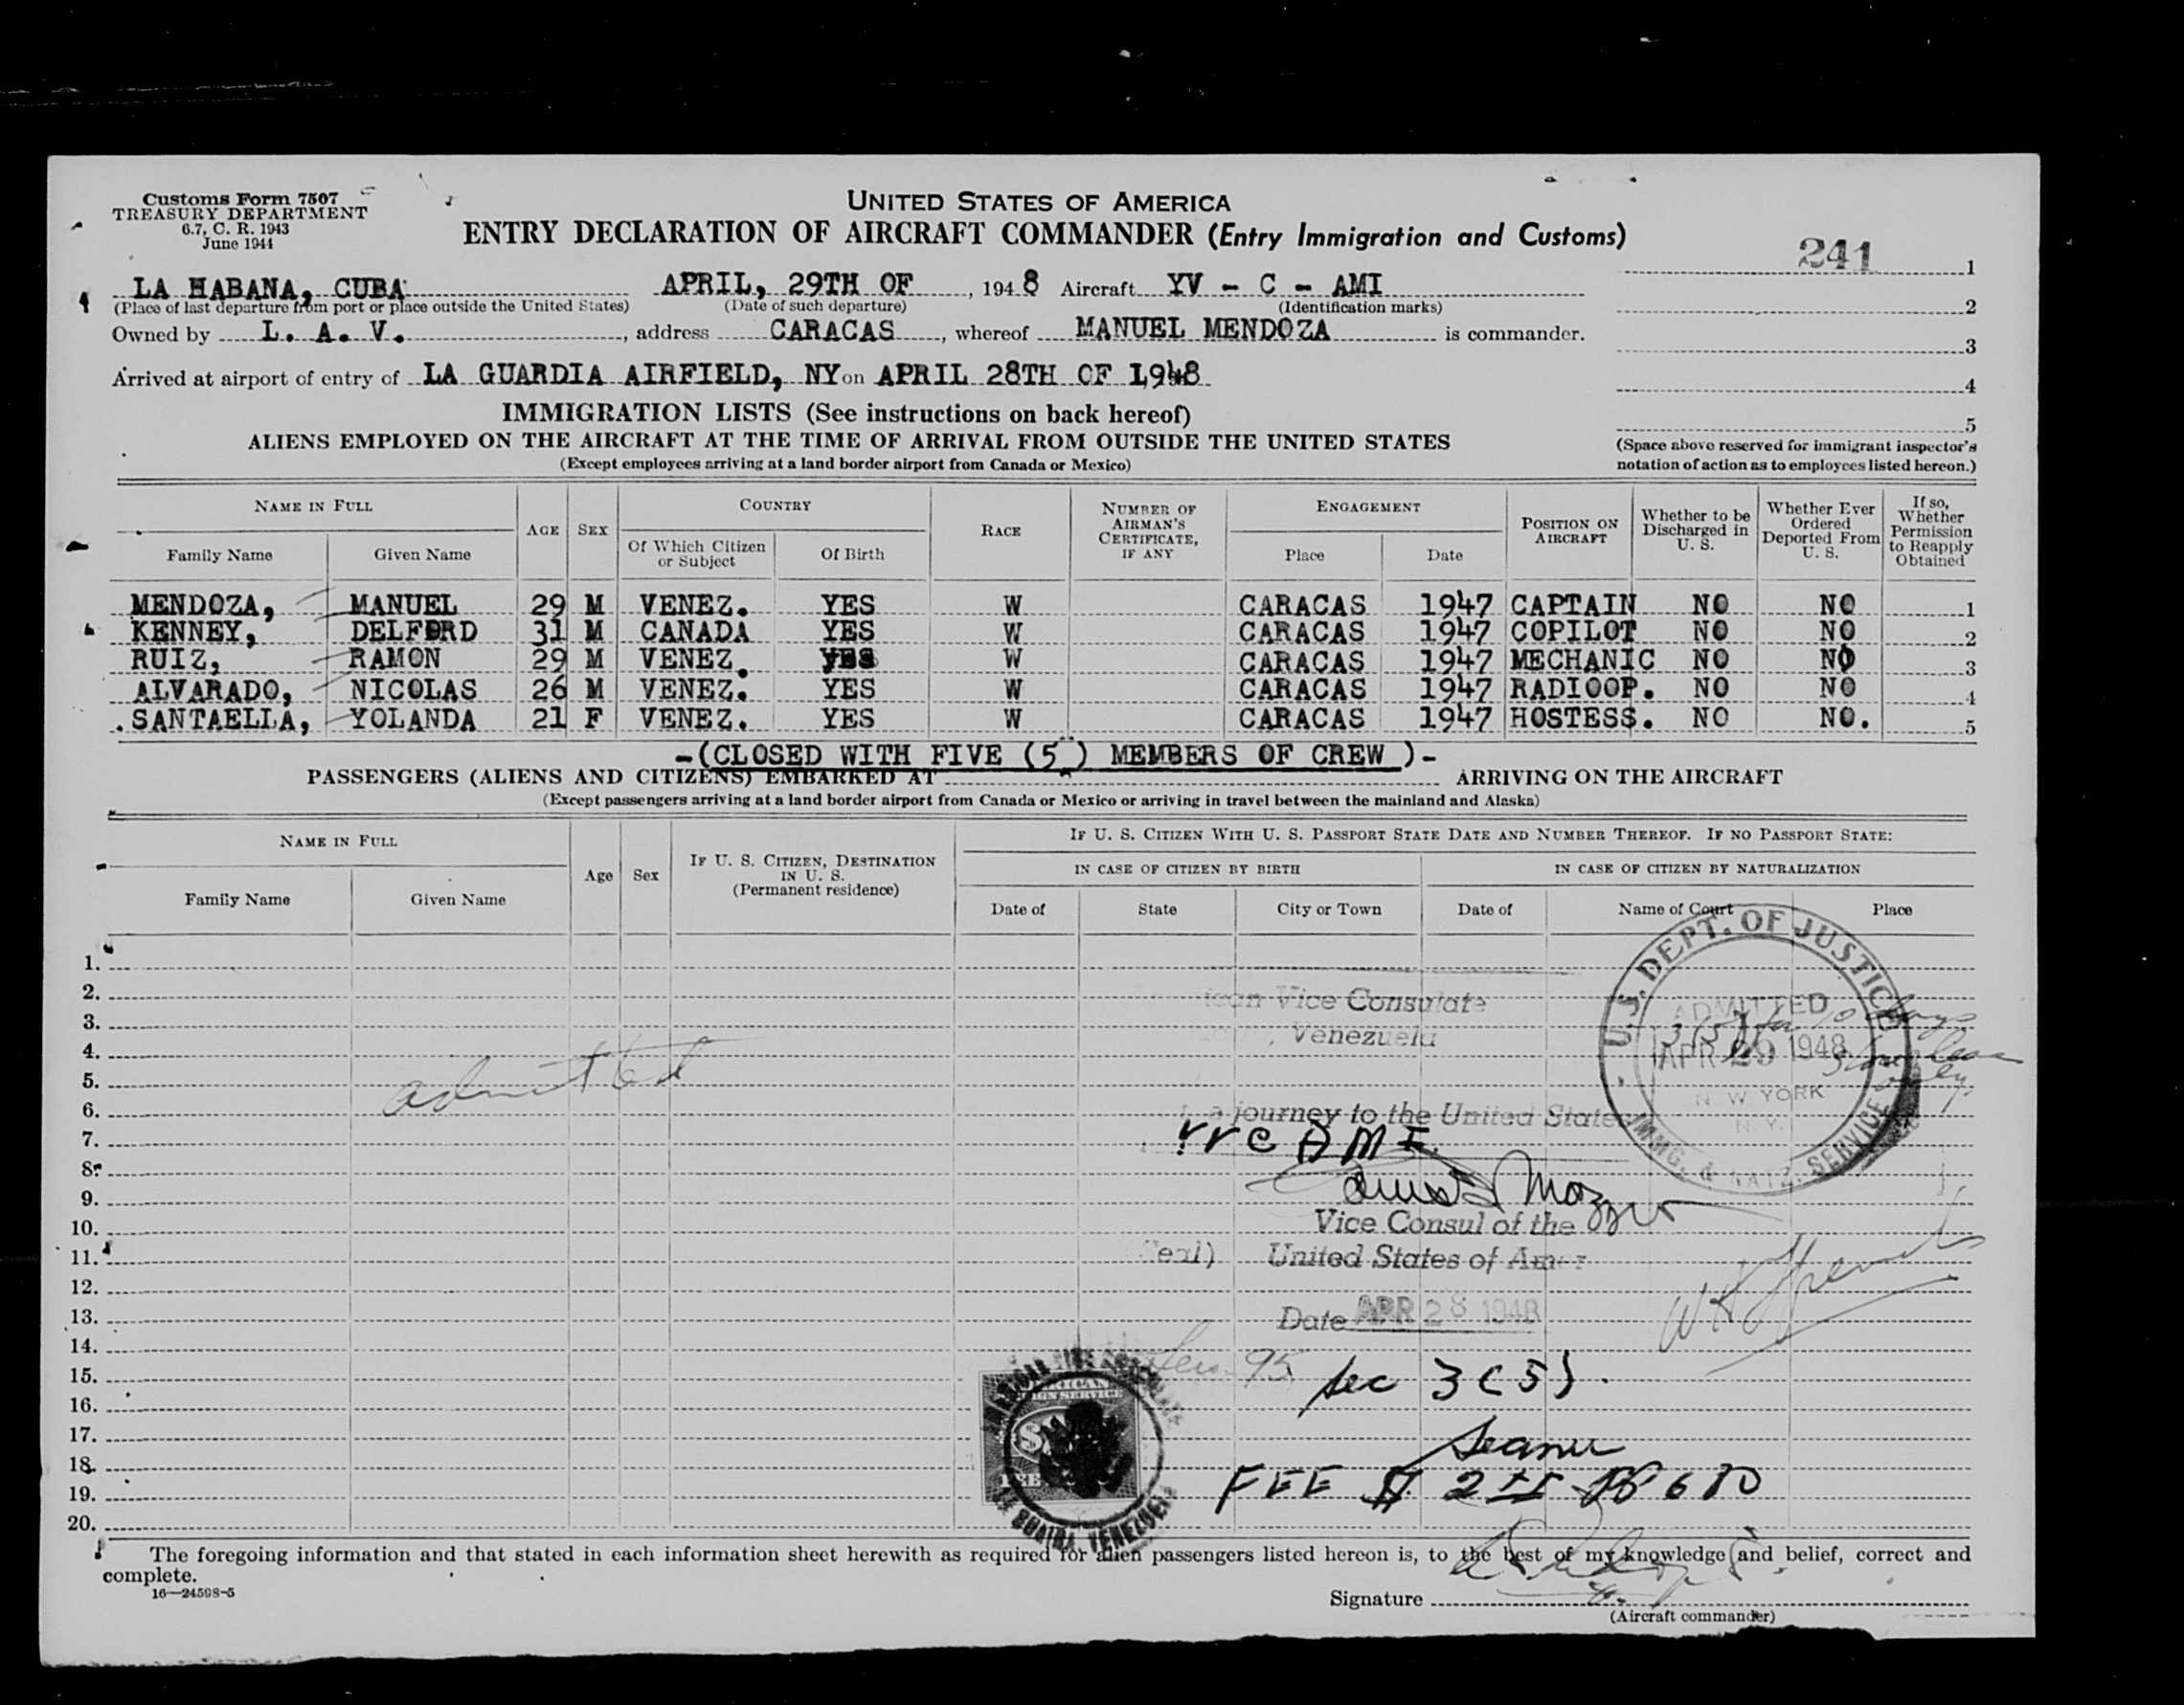 Customs Form 7507
TREASURY DEPARTMENT
6.7, C. R. 1943
June 1944
UNITED STATES OF AMERICA
ENTRY DECLARATION OF AIRCRAFT COMMANDER (Entry Immigration and Customs)
241
1
LA HABANA, CUBA APRIL, 29TH OF, 1948 Aircraft YV - C - AMI
(Place of last departure from port or place outside the United States) (Date of such departure) (Identification marks)
2
Owned by L. A. V., address CARACAS, whereof MANUEL MENDOZA is commander.
3
Arrived at airport of entry of LA GUARDIA AIRFIELD, NY on APRIL 28TH OF 1948
4
IMMIGRATION LISTS (See instructions on back hereof)
5
ALIENS EMPLOYED ON THE AIRCRAFT AT THE TIME OF ARRIVAL FROM OUTSIDE THE UNITED STATES
(Except employees arriving at a land border airport from Canada or Mexico)
(Space above reserved for immigrant inspector's
notation of action as to employees listed hereon.)
NAME IN FULL
Family Name
Given Name
AGE
SEX
COUNTRY
Of Which Citizen
or Subject
Of Birth
RACE
NUMBER OF
AIRMAN'S
CERTIFICATE,
IF ANY
ENGAGEMENT
Place
Date
POSITION ON
AIRCRAFT
Whether to be
Discharged in
U. S.
Whether Ever
Ordered
Deported From
U. S.
If so,
Whether
Permission
to Reapply
Obtained
MENDOZA, MANUEL 29 M VENEZ. YES W CARACAS 1947 CAPTAIN NO NO 1
KENNEY, DELFORD 31 M CANADA YES W CARACAS 1947 COPILOT NO NO 2
RUIZ, RAMON 29 M VENEZ. YES W CARACAS 1947 MECHANIC NO NO 3
ALVARADO, NICOLAS 26 M VENEZ. YES W CARACAS 1947 RADIOOP. NO NO 4
SANTAELLA, YOLANDA 21 F VENEZ. YES W CARACAS 1947 HOSTESS. NO NO. 5
-(CLOSED WITH FIVE (5) MEMBERS OF CREW )-
PASSENGERS (ALIENS AND CITIZENS) EMBARKED AT ARRIVING ON THE AIRCRAFT
(Except passengers arriving at a land border airport from Canada or Mexico or arriving in travel between the mainland and Alaska)
NAME IN FULL
Family Name
Given Name
Age
Sex
IF U. S. CITIZEN, DESTINATION
IN U. S.
(Permanent residence)
IF U. S. CITIZEN WITH U. S. PASSPORT STATE DATE AND NUMBER THEREOF. IF NO PASSPORT STATE:
IN CASE OF CITIZEN BY BIRTH
IN CASE OF CITIZEN BY NATURALIZATION
Date of
State
City or Town
Date of
Name of Court
Place
1.
2.
3.
4.
5.
6.
7.
8.
9.
10.
11.
12.
13.
14.
15.
16.
17.
18.
19.
20.
admitted
Vice Consulate
, Venezuela
a journey to the United States
YVC AMI.
Vice Consul of the
United States of Amer
Date APR 28 1948
U. S. DEPT. OF JUSTICE
ADMITTED
3(5) for 10 days
APR 29 1948
N W YORK
N. Y.
IMMG. & NATZ. SERVICE
95
Sec 3(5).
FEE $ 2
The foregoing information and that stated in each information sheet herewith as required for alien passengers listed hereon is, to the best of my knowledge and belief, correct and
complete.
16—24598-5
Signature
(Aircraft commander)